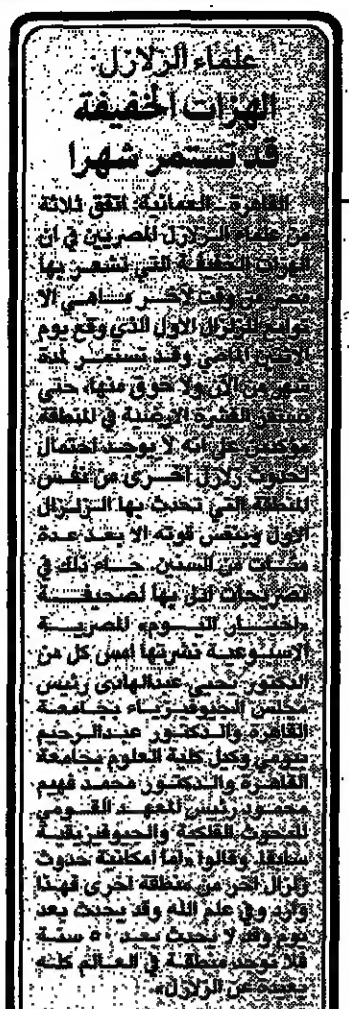 علماء الزلازل:
الهزات الخفيفة
قد تستمر شهرا
القاهرة ـ العمانية: اتفق ثلاثة
من علماء الزلازل المصريين في ان
الهزات الخفيفة التي تشعر بها
مصر من وقت لآخر ماهي الا
توابع للزلزال الاول الذي وقع يوم
الاثنين الماضي وقد تستمر لمدة
شهر من الآن ولا خوف منها حتى
تستقر القشرة الارضية في المنطقة
مؤكدين على انه لا يوجد احتمال
لحدوث زلازل اخرى من نفس
المنطقة التي تحدث بها الزلزال
الاول وبنفس قوته الا بعد عدة
مئات من السنين. جاء ذلك في
تصريحات ادلى بها لصحيفة
«اخبار اليوم» المصرية
الاسبوعية نشرتها امس كل من
الدكتور يحيى عبدالهادى رئيس
مجلس الجيوفيزياء بجامعة
القاهرة والدكتور عبدالرحيم
بيومي وكيل كلية العلوم بجامعة
القاهرة والدكتور محمد فهيم
محمود رئيس المعهد القومي
للبحوث الفلكية والجيوفيزيقية
سابقا. وقالوا «اما امكانية حدوث
زلزال آخر من منطقة اخرى فهذا
وارد وفي علم الله وقد يحدث بعد
يوم وقد لا يحدث بعد ٥٠ سنة
فلا توجد منطقة في العالم كله
بعيدة عن الزلازل».